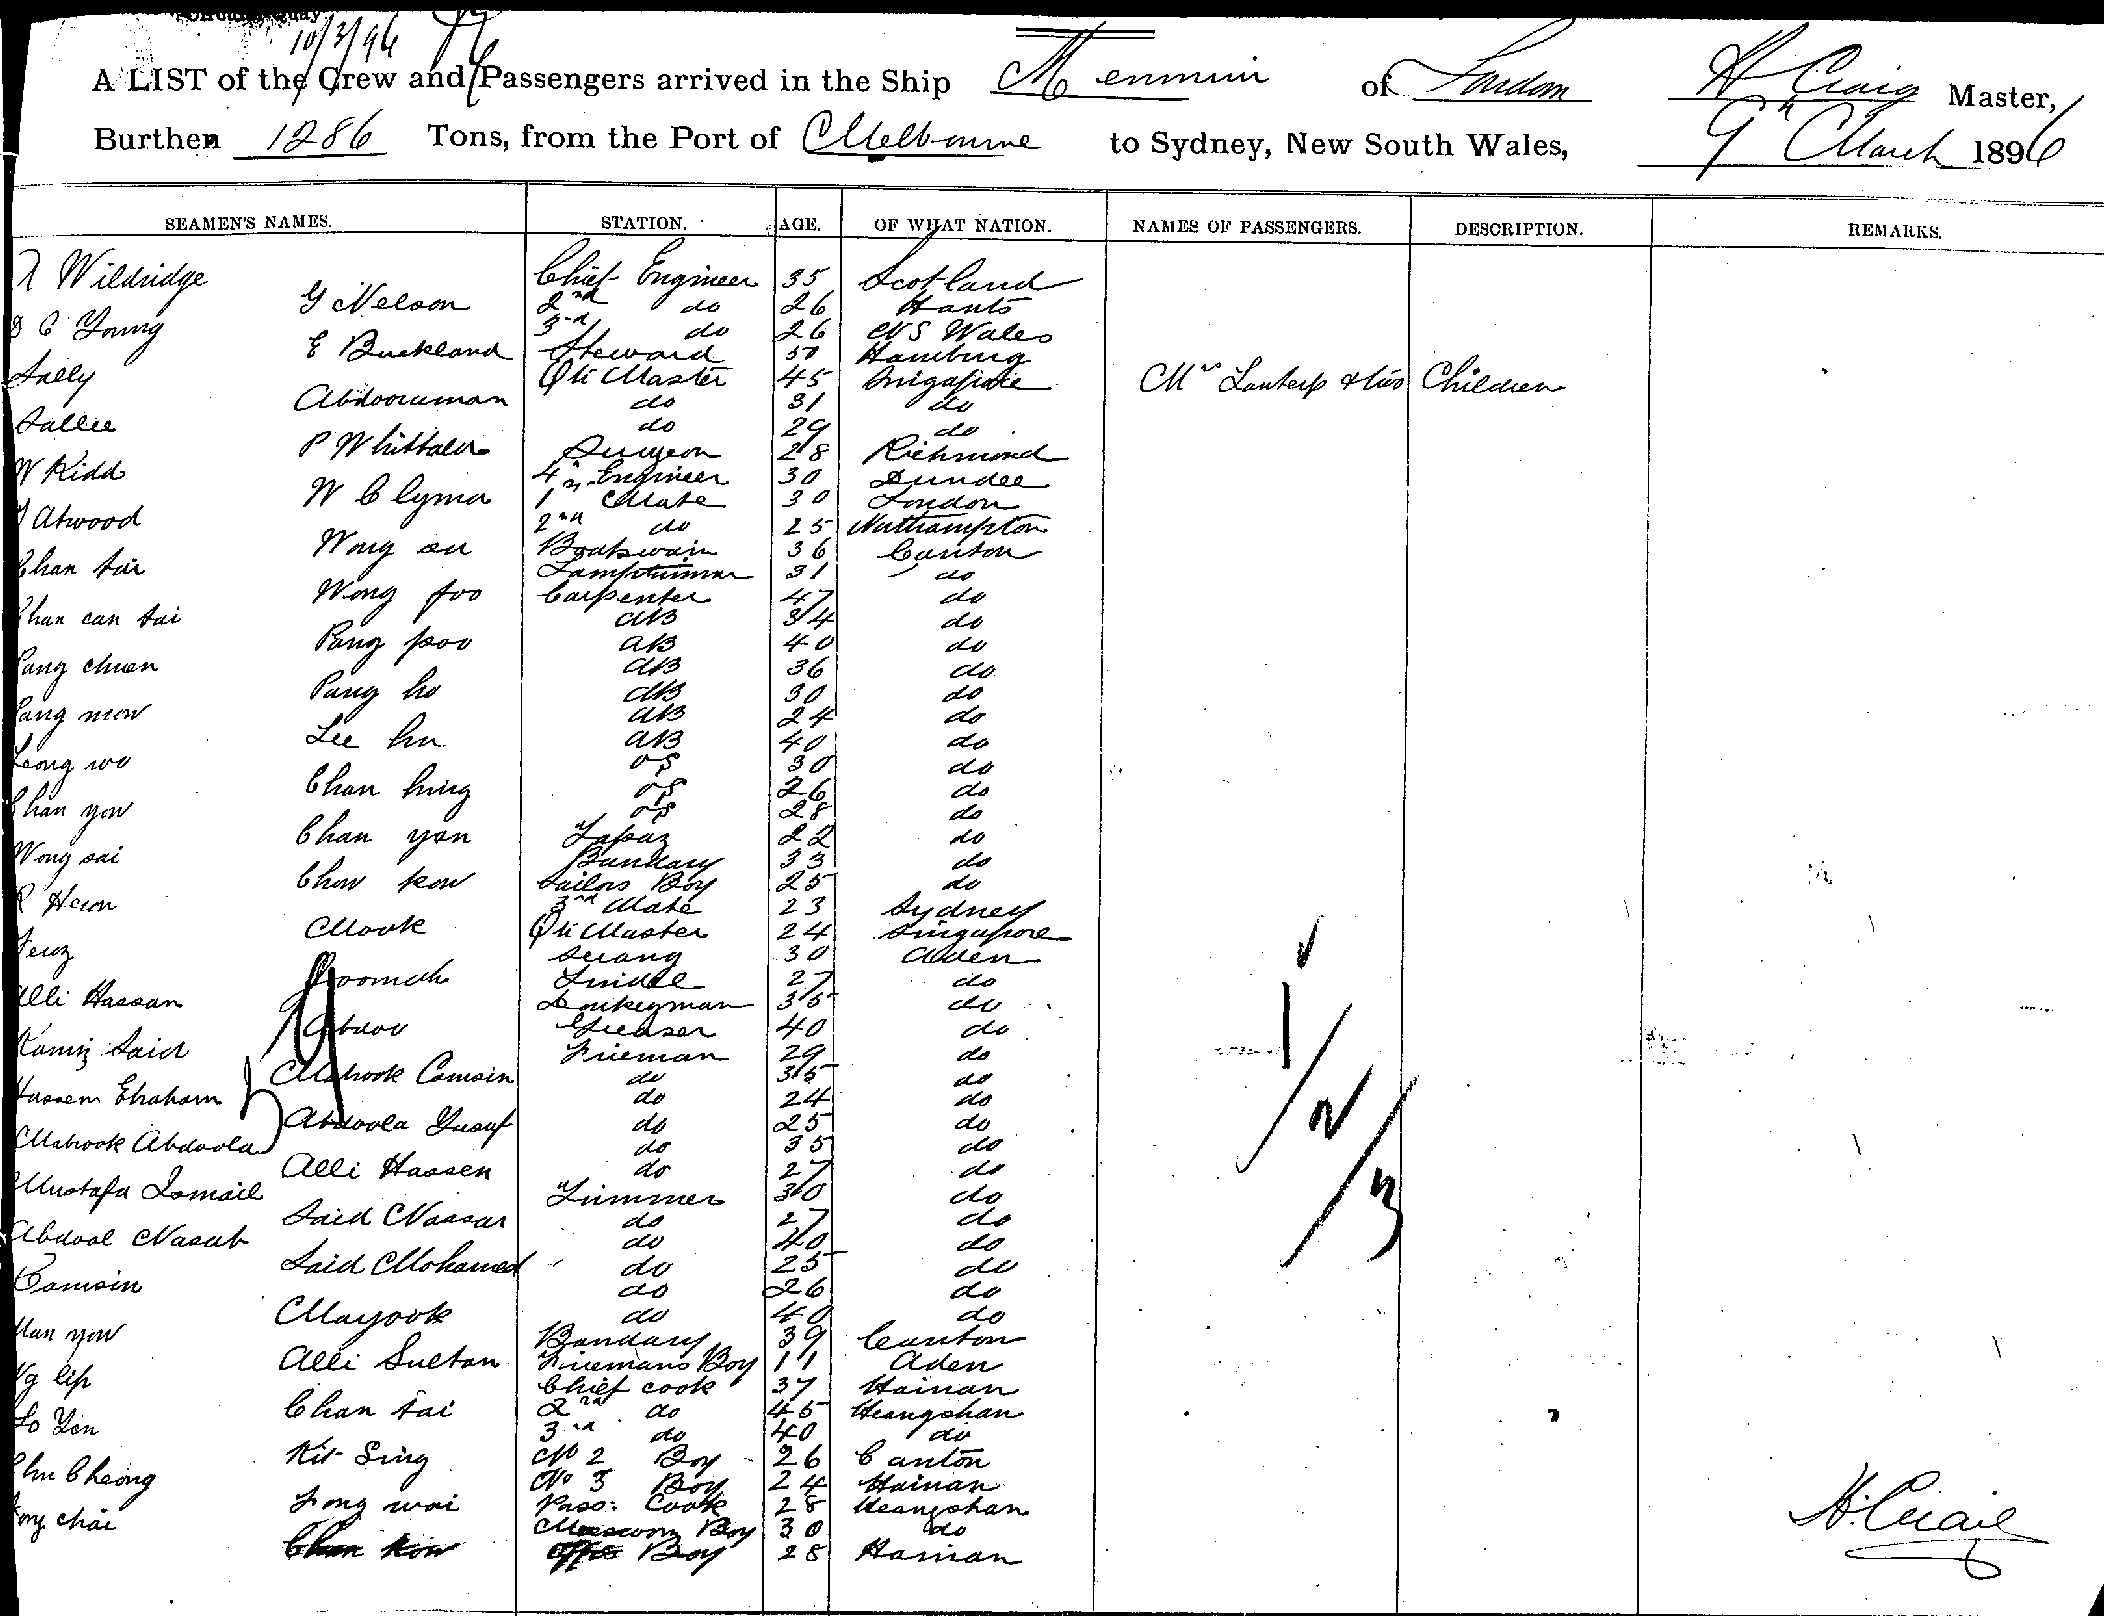 10/3/96
A LIST of the Crew and Passengers arrived in the Ship Menmuir of London H Craig Master,
Burthen 1286 Tons, from the Port of Melbourne to Sydney, New South Wales, 9th March 1896
SEAMEN'S NAMES. STATION. AGE. OF WHAT NATION. NAMES OF PASSENGERS. DESCRIPTION. REMARKS.
Wildridge Chief Engineer 35 Scotland
G Nelson 2nd do 26 Hants
C Young 3rd do 26 N S Wales
E Buckland Steward 50 Hamburg
Sally Qtr Master 45 Singapore Mrs & two Children
Abdooraman do 31 do
Sallee do 29 do
P Whittaker Surgeon 28 Richmond
W Kidd 4th Engineer 30 Dundee
W Clyma 1st Mate 30 London
Atwood 2nd do 25 Northampton
Wong su Boatswain 36 Canton
Chan tai Lamptrimmer 31 do
Wong foo Carpenter 47 do
Chan can tai AB 34 do
Pang poo AB 40 do
Pang chuen AB 36 do
Pang ho AB 30 do
Pang mow AB 24 do
Lee hu AB 40 do
Leong wo OS 30 do
Chan hing OS 26 do
Chan yow OS 28 do
Chan yan Topaz 22 do
Wong sai Bandary 33 do
Chow kow Sailors Boy 25 do
R Heron 3rd Mate 23 Sydney
Mook Qtr Master 24 Singapore
Feroz Serang 30 Aden
Joomah Tindal 27 do
Alli Hassan Donkeyman 35 do
Abdoo Greaser 40 do
Ramiz Said Fireman 29 do
Mabrook Comsin do 35 do
Hassem Ebraham do 24 do
Abdoola Yusuf do 25 do
Mabrook Abdoola do 35 do
Alli Hassen do 27 do
Mustafa Ismail Trimmer 30 do
Said Nassar do 27 do
Abdool Nasab do 40 do
Said Mohamed do 25 do
Comsin do 26 do
Mayook do 40 do
Man yow Bandary 39 Canton
Alli Sultan Firemans Boy 11 Aden
Ng lip Chief cook 37 Hainan
Chan tai 2nd do 45 Heangshan
Lo Yen 3rd do 40 do
Kit Sing No 2 Boy 26 Canton
Chu Cheong No 3 Boy 24 Hainan
Fong wai Pass: Cook 28 Heangshan
Fong chai Messroom Boy 30 do
Chan kow Boy 28 Hainan
1/2/3
H. Craig